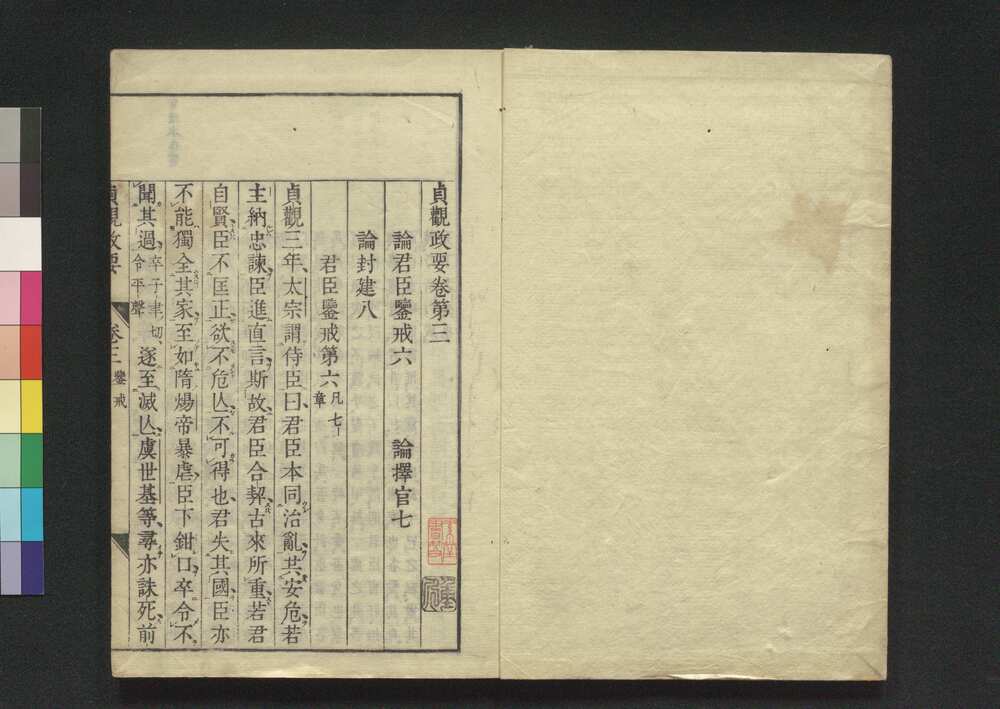 貞觀政要卷第三
論君臣鑒戒六　論擇官七
論封建八
君臣鑒戒第六凡七章
貞觀三年太宗謂侍臣曰君臣本同治亂共安危若
主納忠諫臣進直言斯故君臣合契古來所重若君
自賢臣不匡正欲不危亾不可得也君失其國臣亦
不能獨全其家至如隋煬帝暴虐臣下鉗口卒令不
聞其過卒子聿切令平聲遂至滅亾虞世基等尋亦誅死前
貞觀政要 卷三 鑒戒